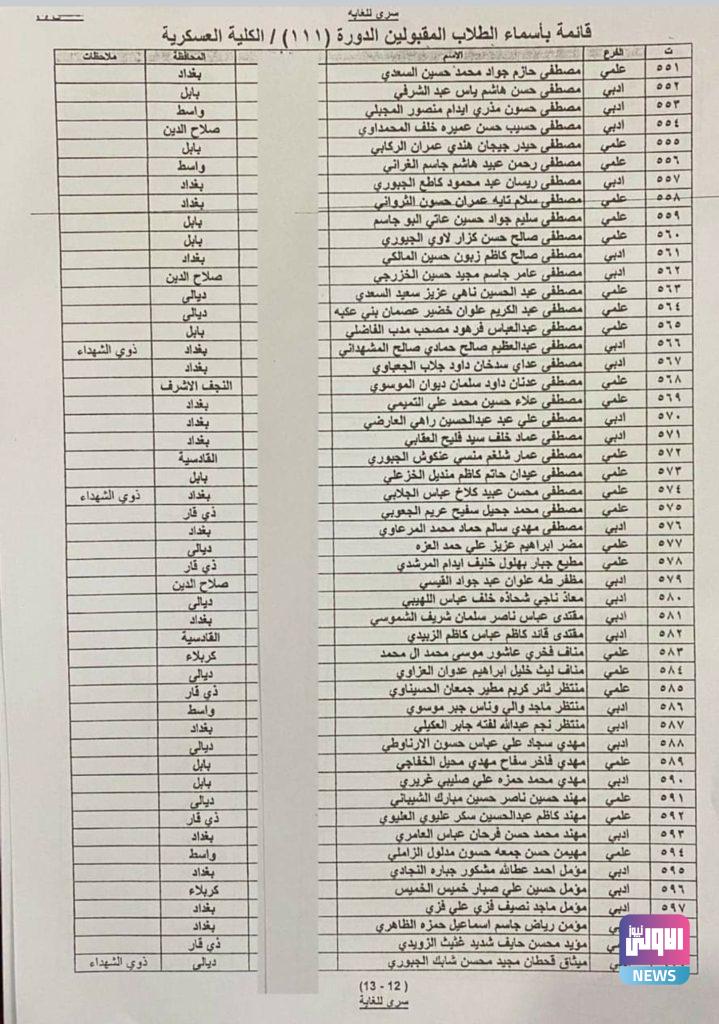 سري للغاية
قائمة بأسماء الطلاب المقبولين الدورة (١١١) / الكلية العسكرية
ت الفرع الاسم المحافظة ملاحظات
٥٥١ علمي مصطفى حازم جواد محمد حسين السعدي بغداد
٥٥٢ ادبي مصطفى حسن هاشم ياس عبد الشرفي بابل
٥٥٣ ادبي مصطفى حسون مذري ايدام منصور المجبلي واسط
٥٥٤ ادبي مصطفى حسيب حسن عميره خلف المحمداوي صلاح الدين
٥٥٥ علمي مصطفى حيدر جيجان هندي عمران الركابي بابل
٥٥٦ علمي مصطفى رحمن عبيد هاشم جاسم الغراني واسط
٥٥٧ ادبي مصطفى ريسان عبد محمود كاطع الجبوري بغداد
٥٥٨ علمي مصطفى سلام تايه عمران حسون الثرواني بغداد
٥٥٩ علمي مصطفى سليم جواد حسين عاتي البو جاسم بابل
٥٦٠ علمي مصطفى صالح حسن كزار لاوي الجبوري بابل
٥٦١ ادبي مصطفى صالح كاظم زبون حسين المالكي بغداد
٥٦٢ ادبي مصطفى عامر جاسم مجيد حسين الخزرجي صلاح الدين
٥٦٣ علمي مصطفى عبد الحسين ناهي عزيز سعيد السعدي ديالى
٥٦٤ علمي مصطفى عبد الكريم علوان خضير عصمان بني عكبه ديالى
٥٦٥ علمي مصطفى عبدالعباس فرهود مصحب مدب الفاضلي بابل
٥٦٦ ادبي مصطفى عبدالعظيم صالح حمادي صالح المشهداني بغداد ذوي الشهداء
٥٦٧ ادبي مصطفى عداي سدخان داود جلاب الجعباوي بغداد
٥٦٨ علمي مصطفى عدنان داود سلمان ديوان الموسوي النجف الاشرف
٥٦٩ علمي مصطفى علاء حسين محمد علي التميمي بغداد
٥٧٠ ادبي مصطفى علي عبد عبدالحسين راهي العارضي بغداد
٥٧١ ادبي مصطفى عماد خلف سيد فليح العقابي بغداد
٥٧٢ علمي مصطفى عمار شلغم منسي عنكوش الجبوري القادسية
٥٧٣ علمي مصطفى عيدان حاتم كاظم منديل الخزعلي بابل
٥٧٤ علمي مصطفى محسن عبيد كلاخ عباس الجلابي بغداد ذوي الشهداء
٥٧٥ علمي مصطفى محمد جحيل سفيح عريم الجعوبي ذي قار
٥٧٦ ادبي مصطفى مهدي سالم حماد محمد المرعاوي بغداد
٥٧٧ علمي مضر ابراهيم عزيز علي حمد العزه ديالى
٥٧٨ علمي مطيع جبار بهلول خليف ايدام المرشدي ذي قار
٥٧٩ ادبي مظفر طه علوان عبد جواد القيسي صلاح الدين
٥٨٠ ادبي معاذ ناجي شحاذه خلف عباس اللهيبي ديالى
٥٨١ ادبي مقتدى عباس ناصر سلمان شريف الشموسي بغداد
٥٨٢ ادبي مقتدى قائد كاظم عباس كاظم الزبيدي القادسية
٥٨٣ علمي مناف فخري عاشور موسى محمد ال محمد كربلاء
٥٨٤ علمي مناف ليث خليل ابراهيم عدوان العزاوي ديالى
٥٨٥ علمي منتظر ثائر كريم مطير جمعان الحسيناوي ذي قار
٥٨٦ ادبي منتظر ماجد والي وناس جبر موسوي واسط
٥٨٧ ادبي منتظر نجم عبدالله لفته جابر العكيلي بغداد
٥٨٨ ادبي مهدي سجاد علي عباس حسون الارناوطي ديالى
٥٨٩ علمي مهدي فاخر سفاح مهدي محيل الخفاجي بابل
٥٩٠ ادبي مهدي محمد حمزه علي صليبي غريري بابل
٥٩١ علمي مهند حسين ناصر حسين مبارك الشيباني ديالى
٥٩٢ علمي مهند كاظم عبدالحسين سكر عليوي العليوي ذي قار
٥٩٣ ادبي مهند محمد حسن فرحان عباس العامري بغداد
٥٩٤ علمي مهيمن حسن جمعه حسون مدلول الزاملي واسط
٥٩٥ ادبي مؤمل احمد عطالله مشكور جباره النجادي بغداد
٥٩٦ ادبي مؤمل حسين علي صبار خميس الخميس كربلاء
٥٩٧ ادبي مؤمل ماجد نصيف فزي علي فزي بغداد
مؤمن رياض جاسم اسماعيل حمزه الظاهري بغداد
مؤيد محسن حايف شديد غثيث الزويدي ذي قار
ميثاق قحطان مجيد محسن شابك الجبوري ديالى ذوي الشهداء
(13 - 12)
سري للغاية
الاولى نيوز
NEWS